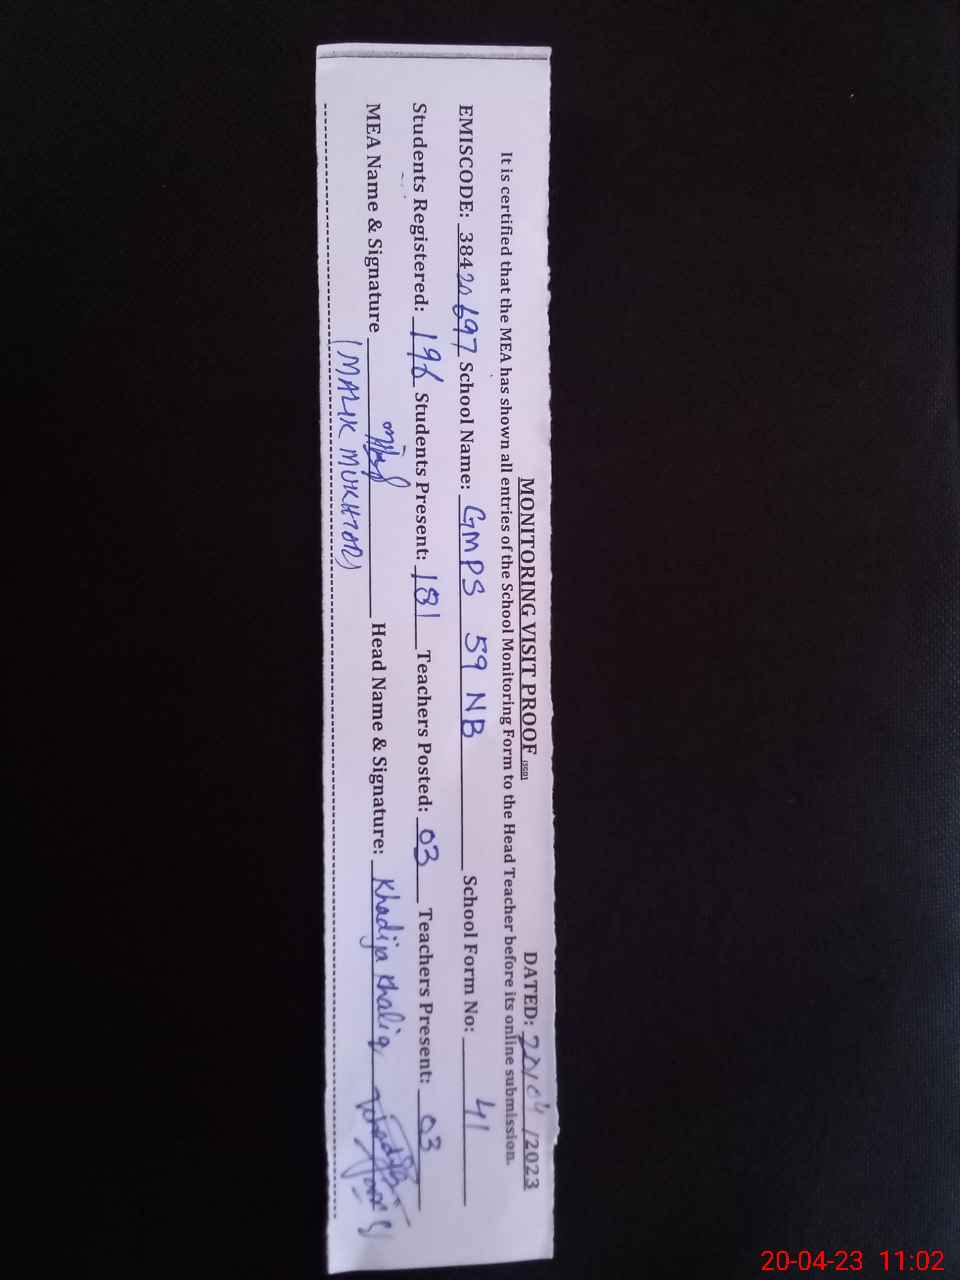 MONITORING VISIT PROOF DATED: 20/04/2023
It is certified that the MEA has shown all entries of the School Monitoring Form to the Head Teacher before its online submission.
EMISCODE: 38420697 School Name: GMPS 59 NB School Form No: 41
Students Registered: 196 Students Present: 181 Teachers Posted: 03 Teachers Present: 03
MEA Name & Signature Head Name & Signature: Khadija Khaliq
(MALIK MUKHTAR)
20-04-23 11:02